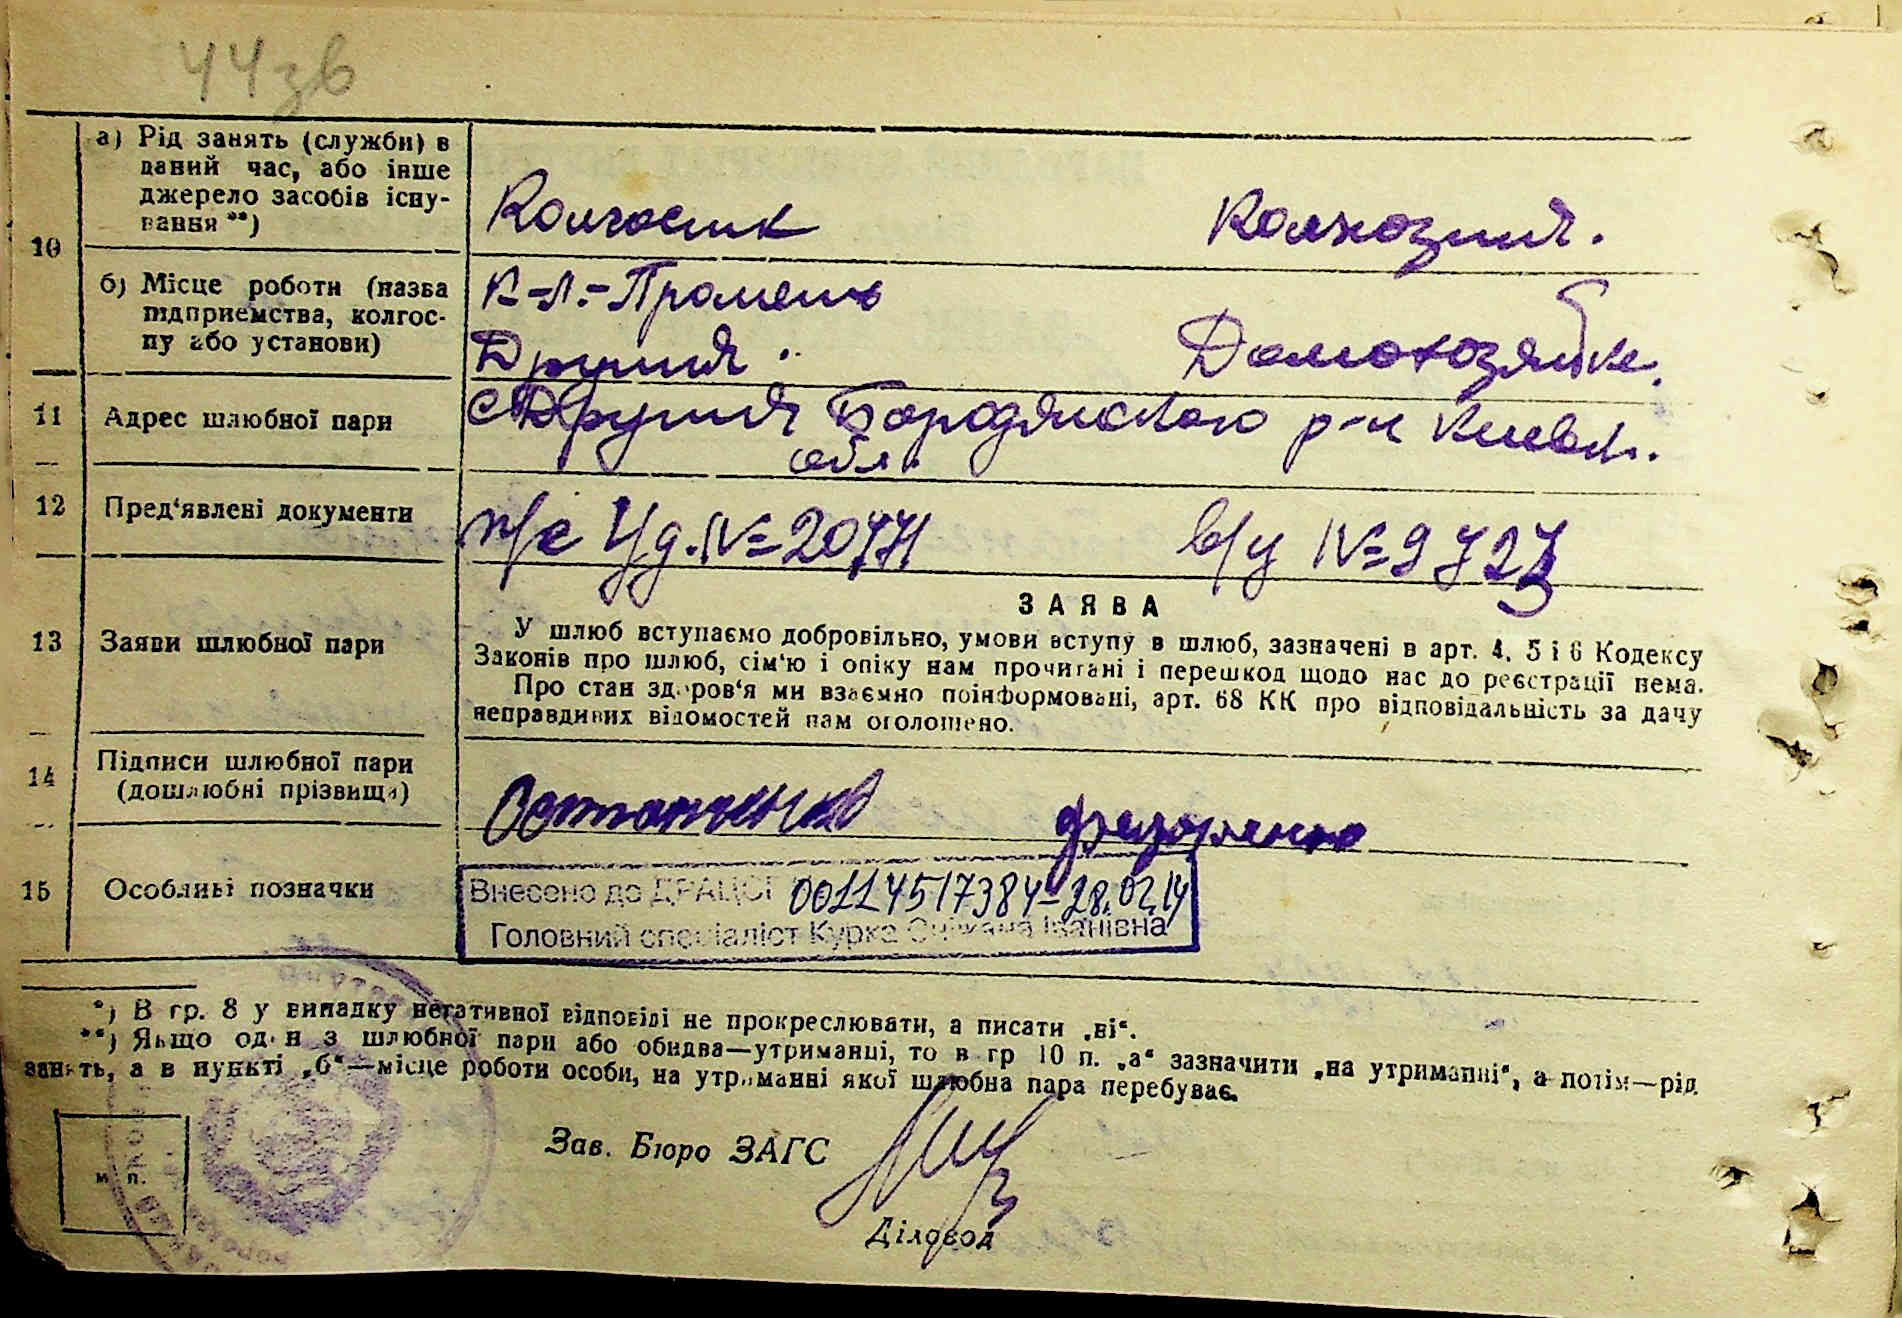 44зв
10
а) Рід занять (служби) в
даний час, або інше
джерело засобів існу-
вання **)
Колгосник
Колхозния.
б) Місце роботи (назва
підприємства, колгос-
пу або установи)
К-Л.-Промень
Друшня.
Домохозяйка.
11
Адрес шлюбної пари
с Друшня Бородянського р-н Киевск.
обл.
12
Пред'явлені документи
п/с Уд. № 20471
в/у № 9727
13
Заяви шлюбної пари
ЗАЯВА
У шлюб вступаємо добровільно, умови вступу в шлюб, зазначені в арт. 4, 5 і 6 Кодексу
Законів про шлюб, сім'ю і опіку нам прочитані і перешкод щодо нас до реєстрації нема.
Про стан здоров'я ми взаємно поінформовані, арт. 68 КК про відповідальність за дачу
неправдивих відомостей нам оголошено.
14
Підписи шлюбної пари
(дошлюбні прізвища)
Остапченко
Федоренко
15
Особливі позначки
Внесено до ДРАЦСГ 00114517384-28.02.14
Головний спеціаліст Курка Сніжана Іванівна
*) В гр. 8 у випадку негативної відповіді не прокреслювати, а писати „ні“.
**) Якщо один з шлюбної пари або обидва—утриманці, то в гр 10 п. „а“ зазначити „на утриманні“, а потім—рід
занять, а в пункті „б“—місце роботи особи, на утриманні якої шлюбна пара перебуває.
Зав. Бюро ЗАГС
м. п.
Діловод